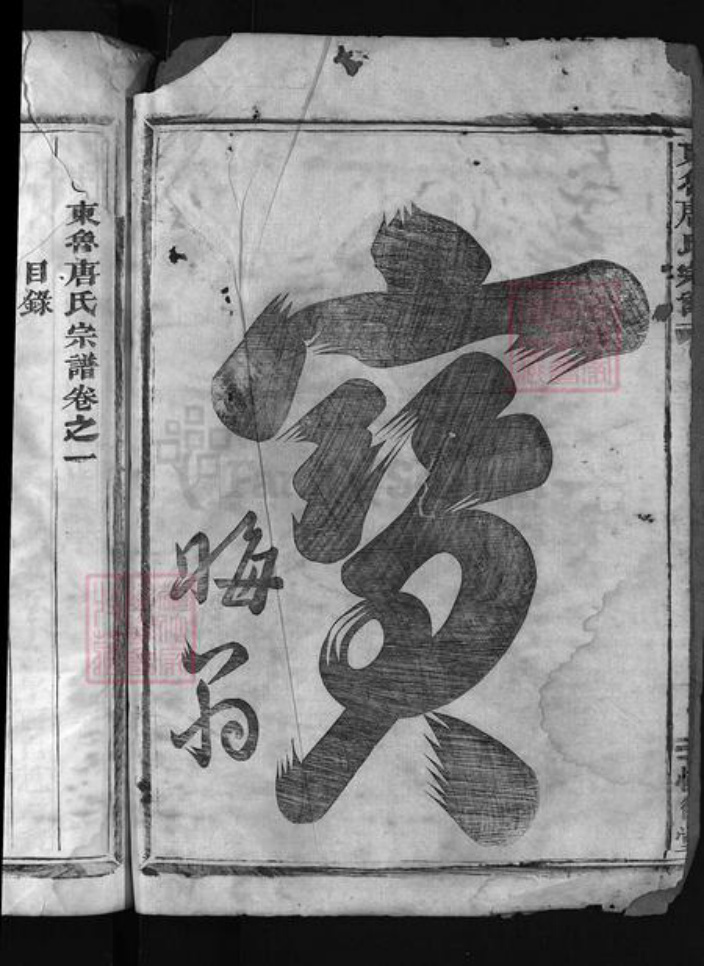 寶
晦翁
東魯唐氏宗譜卷之一
目錄